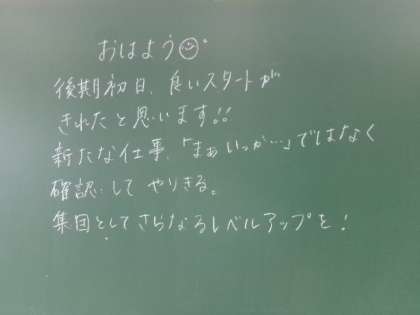 おはよう☺
後期初日、良いスタートが
きれたと思います!!
新たな仕事、「まぁいっか…」ではなく
確認してやりきる。
集団としてさらなるレベルアップを!